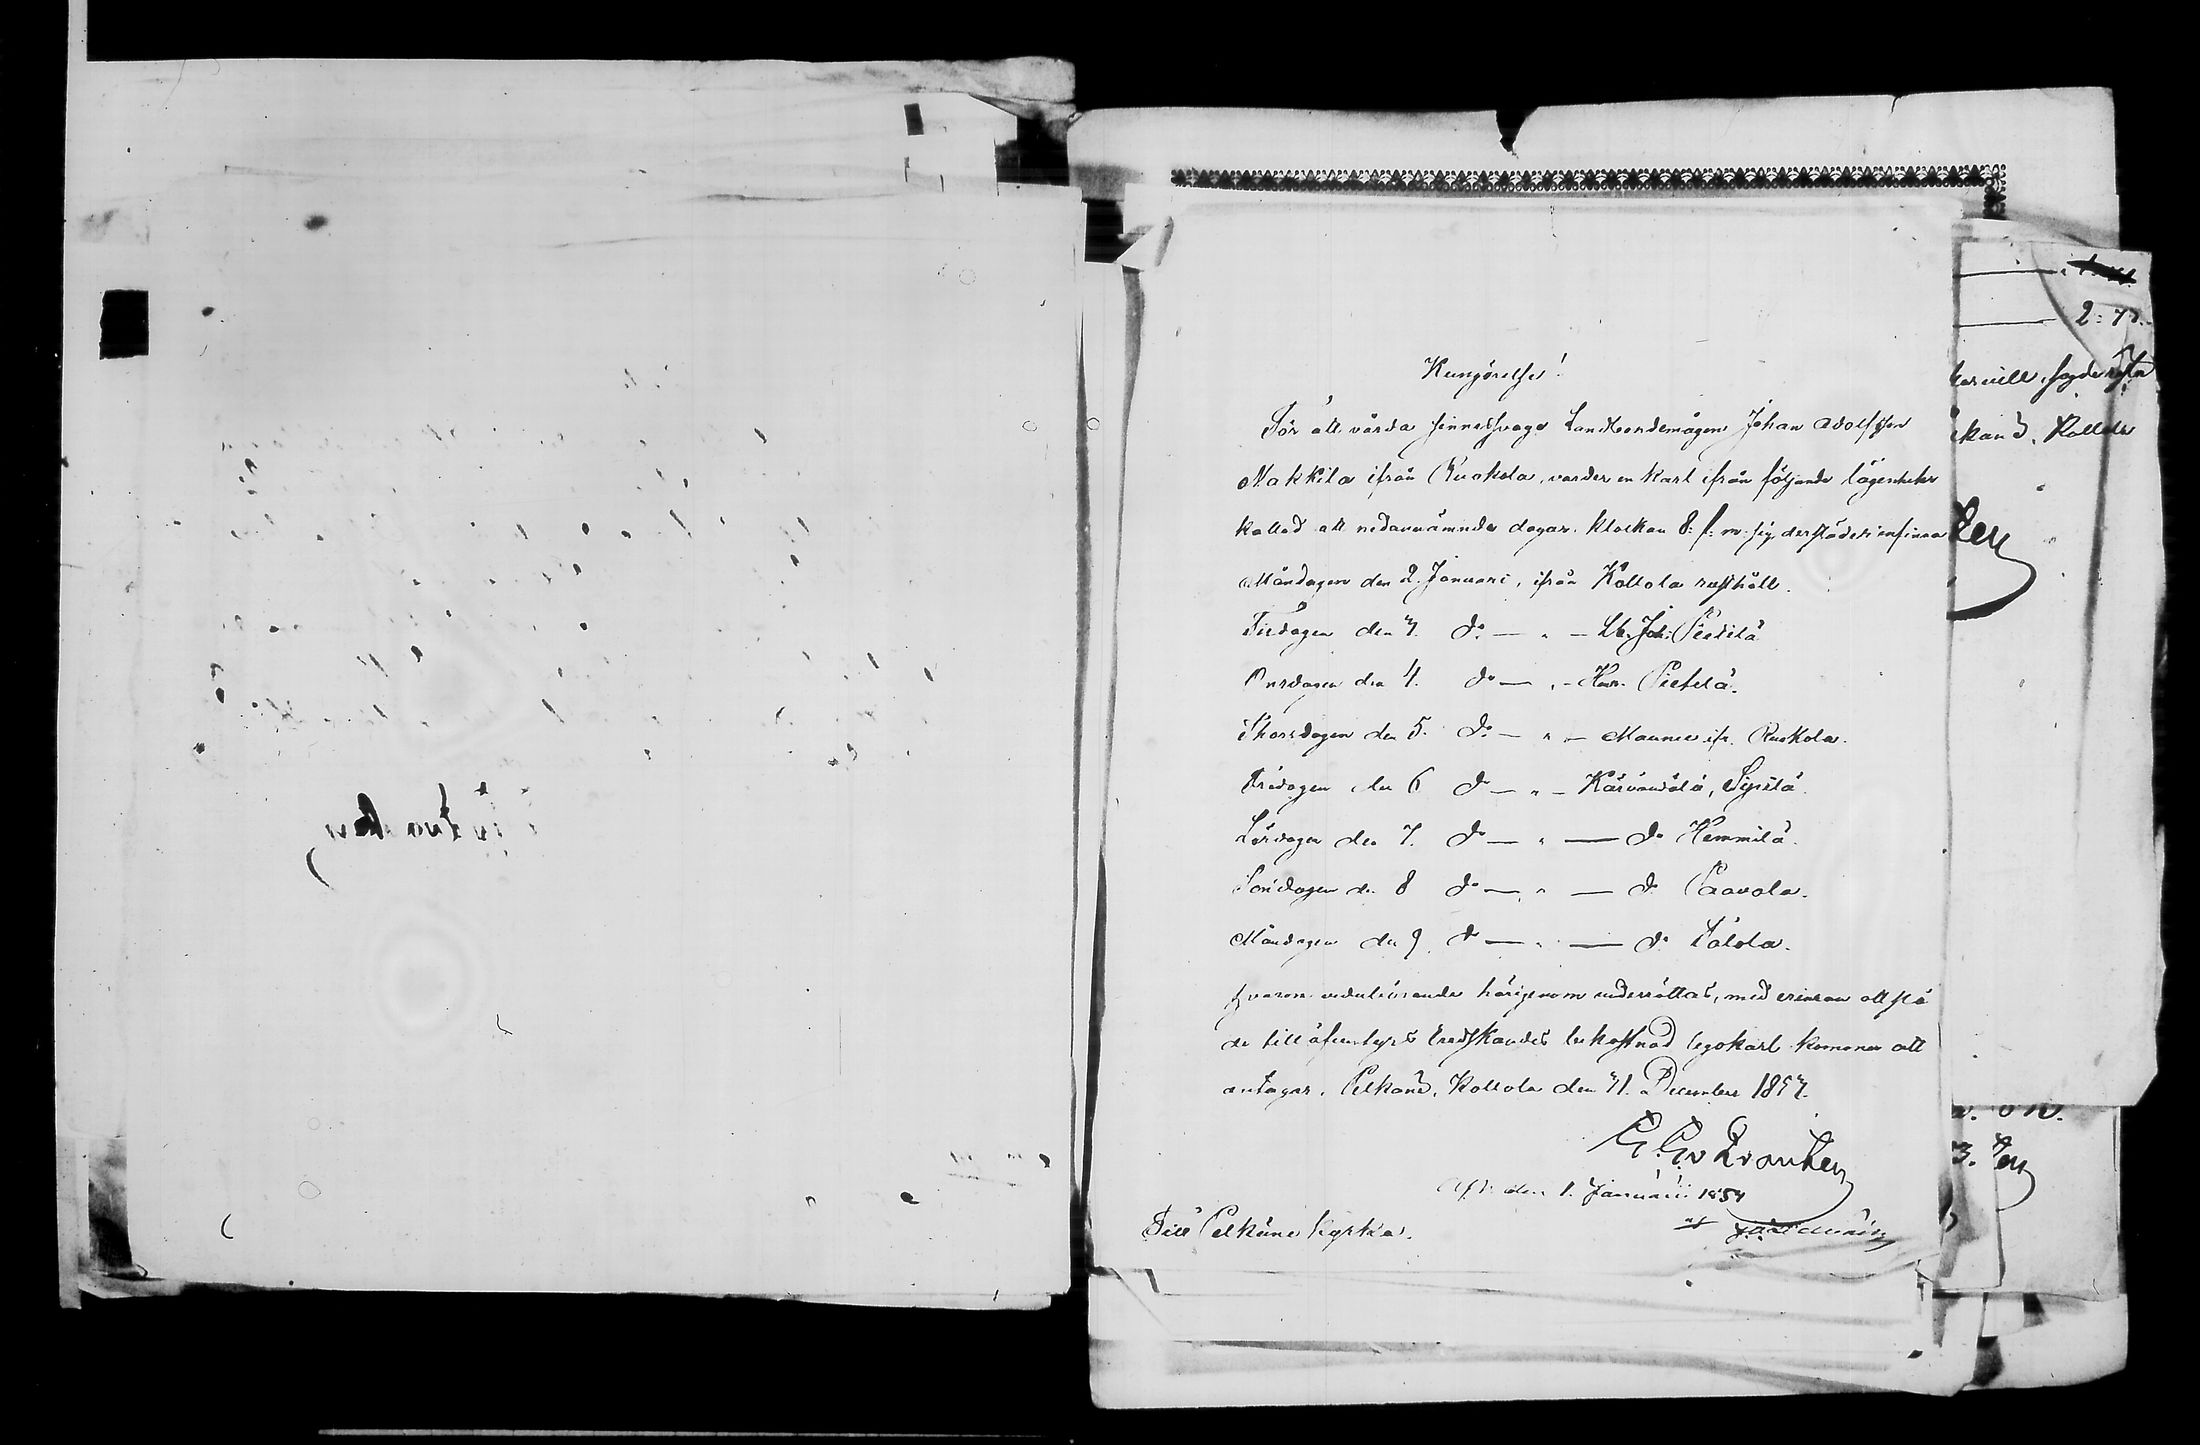 Kungörelse!
För att vårda sinnessvage Landbondemågen Johan Adolfsson
Nakkila ifrån Ruokola, varder en karl ifrån följande lägenheter
kallad att nedannämnde dagar klockan 8: f: m: sig derstädes infinna
Måndagen den 2. Januari, ifrån Kollola rusthåll.
Tisdagen den 3. do — " — Lb. Joh: Pietilä
Onsdagen den 4. do — " — Henr. Pietilä.
Thorsdagen den 5. do — " — Maunu ifr. Ruokola.
Fredagen den 6 do — " — Kärvändälä, Sipilä.
Lördagen den 7. do — " — do Hemmilä.
Söndagen den 8 do — " — do Paavola.
Måndagen den 9. do — " — do Tälola.
hvarom vederbörande härigenom underrättas, med erinran att på
de tilläfventyrs tredskandes bekostnad legokarl kommer att
antagas. Pelkäne, Kollola den 31. December 1853.
C. G. v Zvanken
Afk. den 1. Januarii 1854
af
Till Pelkäne kyrka.
2: 73.
Kollola